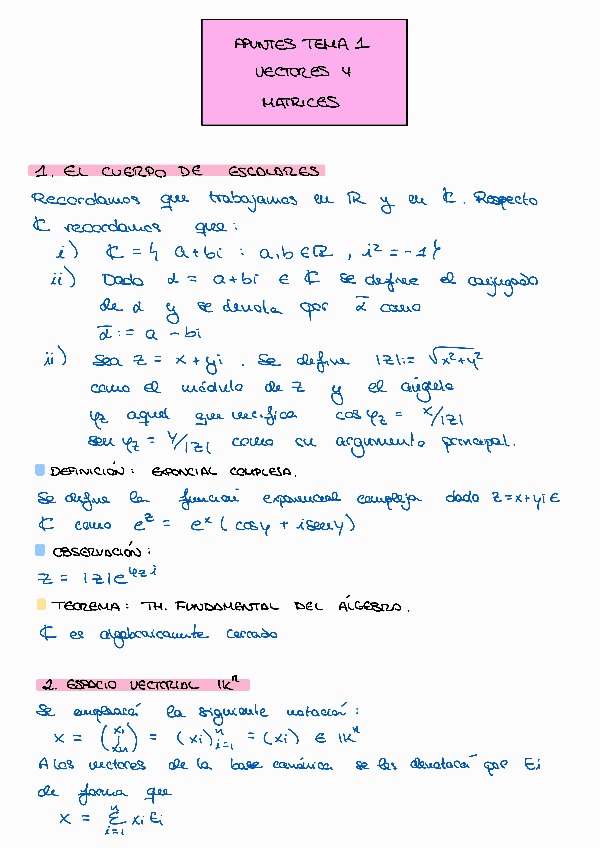 APUNTES TEMA 1
VECTORES Y
MATRICES
1. EL CUERPO DE ESCALARES
Recordamos que trabajamos en ℝ y en ℂ. Respecto
ℂ recordamos que:
i) ℂ = { a+bi : a,b ∈ ℝ, i² = -1}
ii) Dado α = a+bi ∈ ℂ se define el conjugado
de α y se denota por ᾱ como
ᾱ := a - bi
ii) Sea z = x+yi. Se define |z|:= √x²+y²
como el módulo de z y el ángulo
φz aquel que verifica cos φz = x/|z|
sen φz = y/|z| como su argumento principal.
DEFINICIÓN: EXPONCIAL COMPLEJA.
Se define la función exponencial compleja dado z=x+yi ∈
ℂ como e^z = e^x (cosy + iseny)
OBSERVACIÓN:
z = |z|e^φz i
TEOREMA: TH. FUNDAMENTAL DEL ÁLGEBRA.
ℂ es algebraicamente cerrado
2. ESPACIO VECTORIAL 𝕂ⁿ
Se empleará la siguiente notación:
x = (x₁ ⋮ xₙ) = (xi)ⁿ i=1 = (xi) ∈ 𝕂ⁿ
A los vectores de la base canónica se les denotará por Ei
de forma que
x = Σⁿ i=1 xi Ei